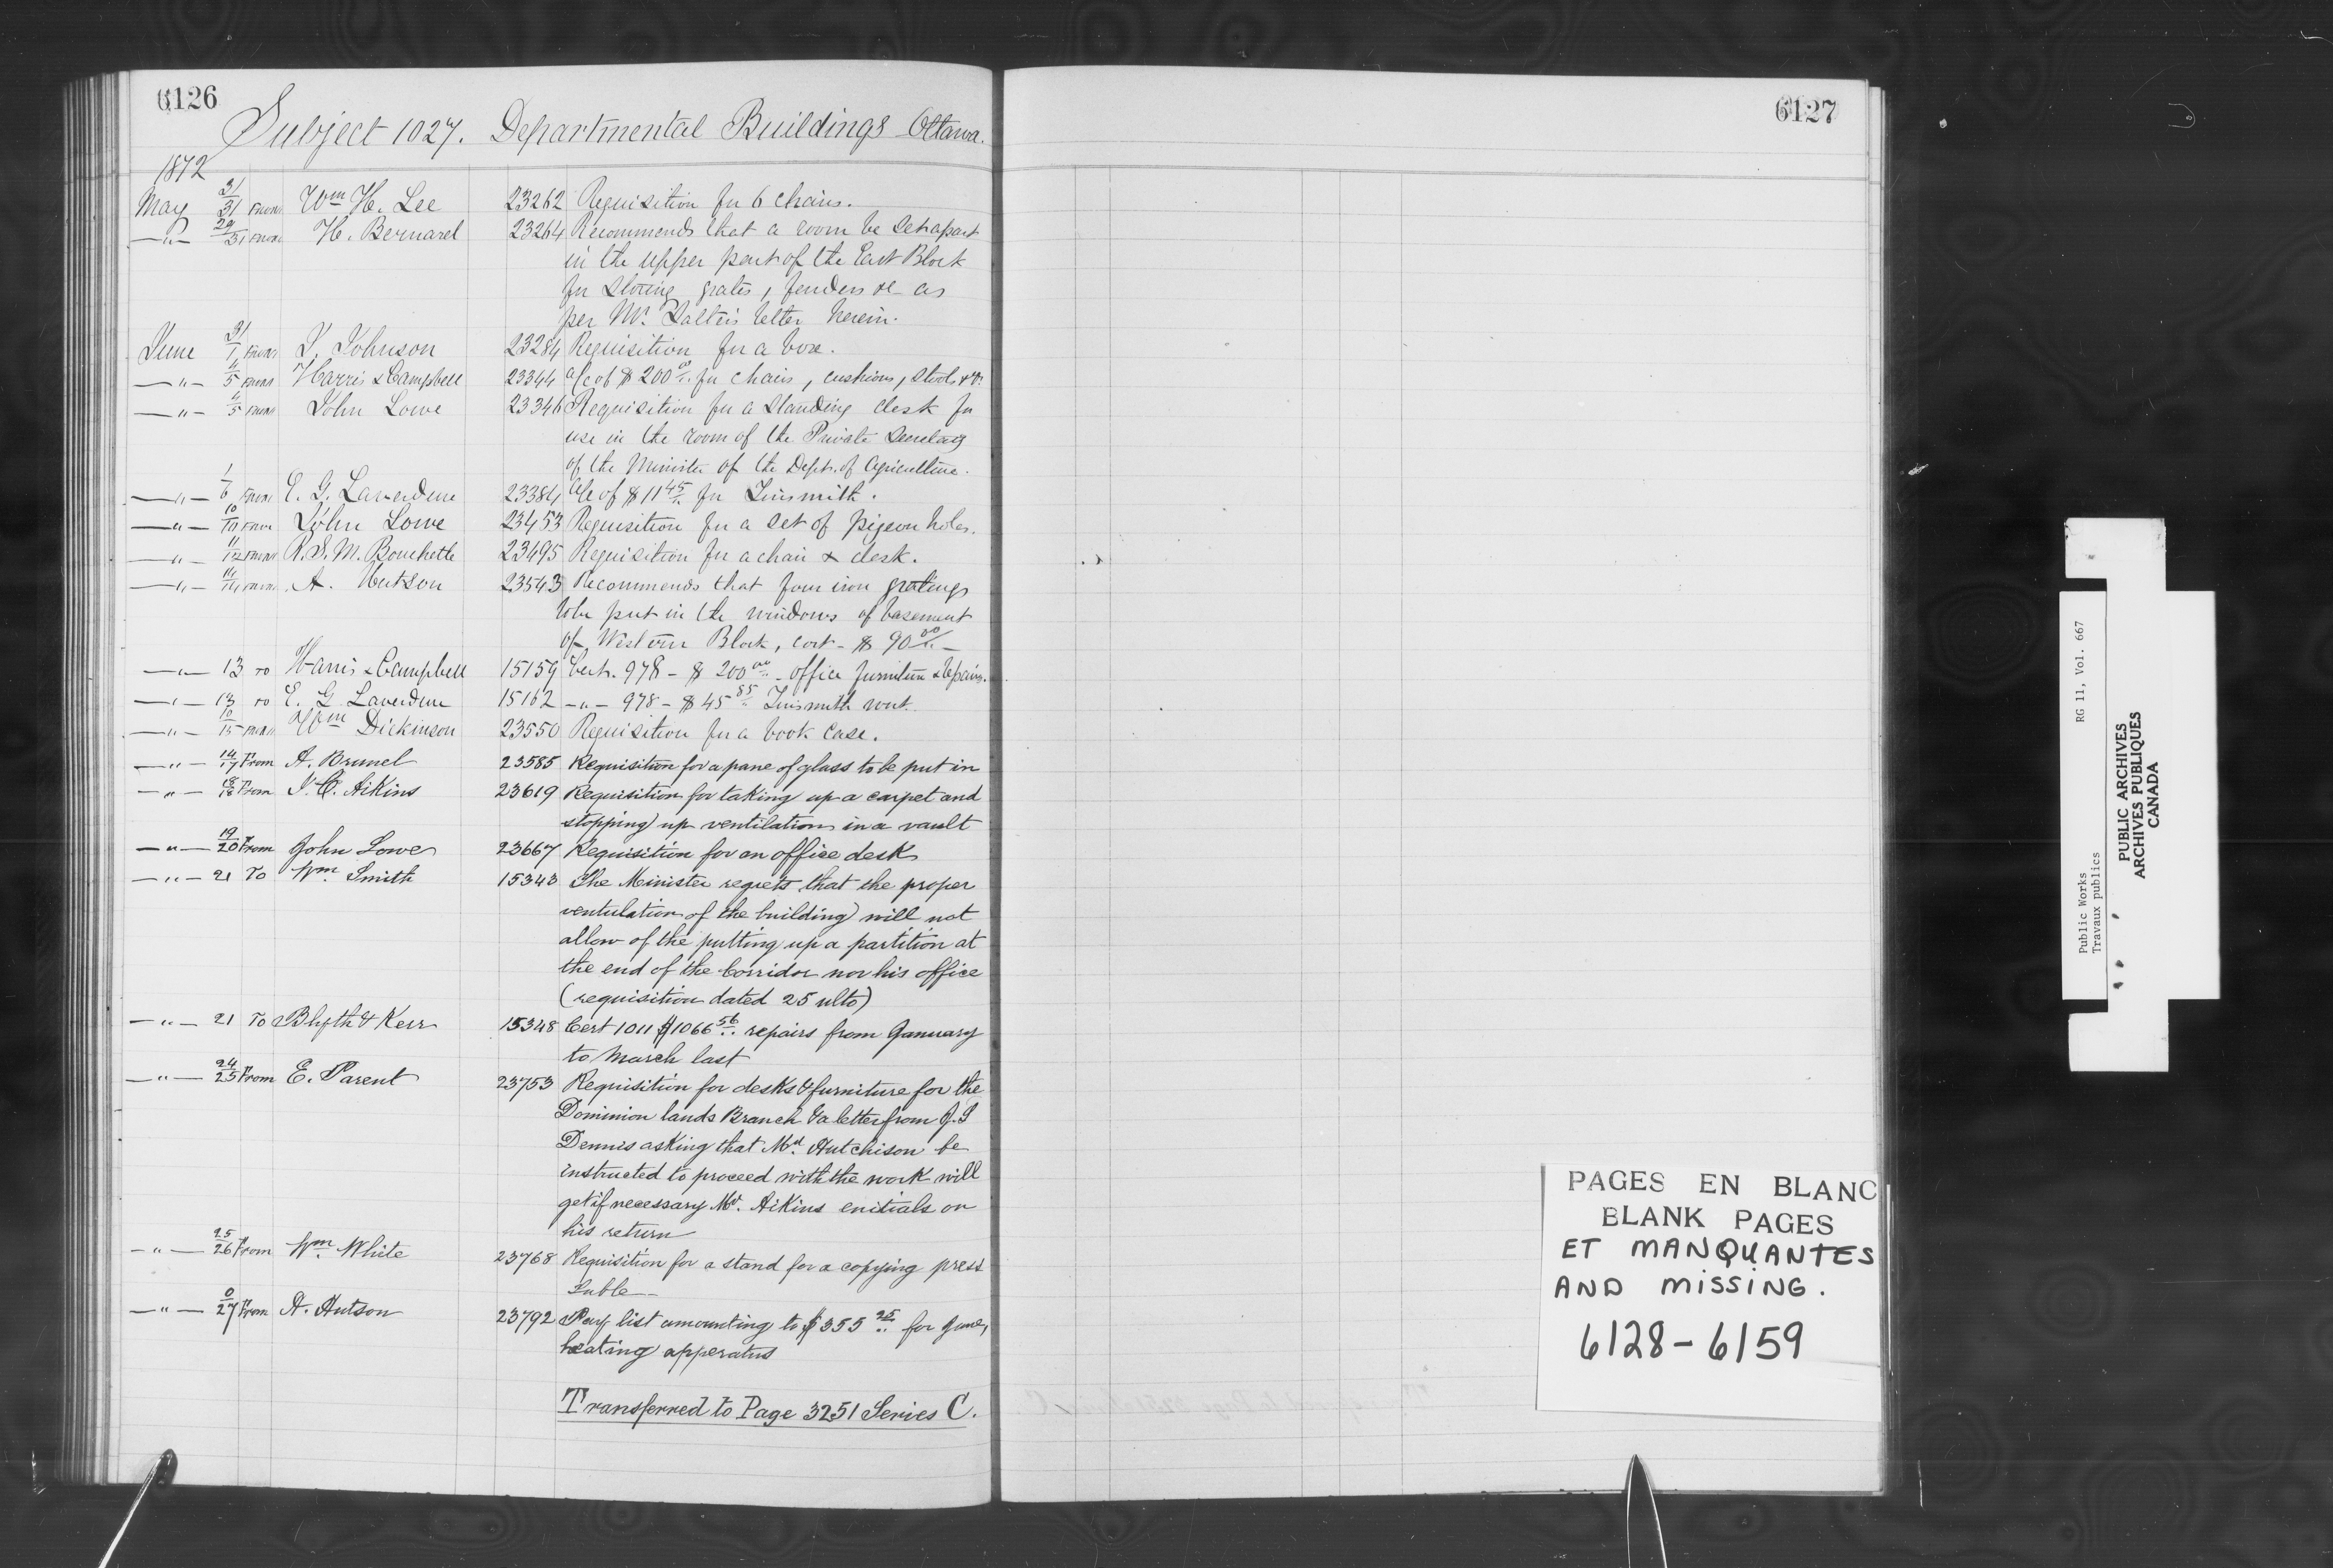 6126
Subject 1027. Departmental Buildings Ottawa.
1872
May 31/31 From Wm H. Lee 23262 Requisition for 6 chairs.
—"— 29/31 From H. Bernard 23264 Recommends that a room be set apart
in the upper part of the East Block
for storing grates, fenders &c as
per Mr. letter herein.
June 31/1 From J. Johnson 23284 Requisition for a box.
—"— 4/5 From Harris & Campbell 23344 a/c of $200.00 for chairs, cushions, stools &c.
—"— 4/5 From John Lowe 23346 Requisition for a standing desk for
use in the room of the Private Secretary
of the Minister of the Dept. of Agriculture.
—"— 1/6 From E. G. Laverdure 23384 a/c of $11.45 for Tinsmith.
—"— 10/11 From John Lowe 23453 Requisition for a set of pigeon holes.
—"— 11/12 From R. S. M. Bouchette 23495 Requisition for a chair & desk.
—"— 14/14 From A. Hutson 23543 Recommends that four iron gratings
to be put in the windows of basement
of Western Block, cost - $90.00 —
—"— 13 To Harris & Campbell 15159 Cert. 978 - $200.00 - office furniture & repairs.
—"— 13 To E. G. Laverdure 15162 —"— 978 - $45.85 Tinsmith work.
—"— 10/15 From Wm Dickinson 23550 Requisition for a book case.
—"— 14/17 From A. Brunel 23585 Requisition for a pane of glass to be put in
—"— 18/18 From J. C. Aikins 23619 Requisition for taking up a carpet and
stopping up ventilation in a vault
—"— 19/20 From John Lowe 23667 Requisition for an office desk
—"— 21 To Wm. Smith 15343 The Minister regrets that the proper
ventulation of the building will not
allow of the putting up a partition at
the end of the Corridor nor his office
(requisition dated 25 ulto)
—"— 21 To Blyth & Kerr 15348 Cert 1011 $1066.56 repairs from January
to March last
—"— 24/25 From E. Parent 23753 Requisition for desks & furniture for the
Dominion lands Branch & a letter from J. S
Dennis asking that Mr. Hutchison be
instructed to proceed with the work will
get if necessary Mr. Aikins enitials on
his return
—"— 25/26 From Wm. White 23768 Requisition for a stand for a copying press
—"— 0/27 From A. Hutson 23792 Pay list amounting to $355.25 for June,
heating apperatus
Transferred to Page 3251 Series C.
6127
PAGES EN BLANC
BLANK PAGES
ET MANQUANTES
AND MISSING.
6128-6159
Public Works RG 11, Vol. 667
Travaux publics
PUBLIC ARCHIVES
ARCHIVES PUBLIQUES
CANADA